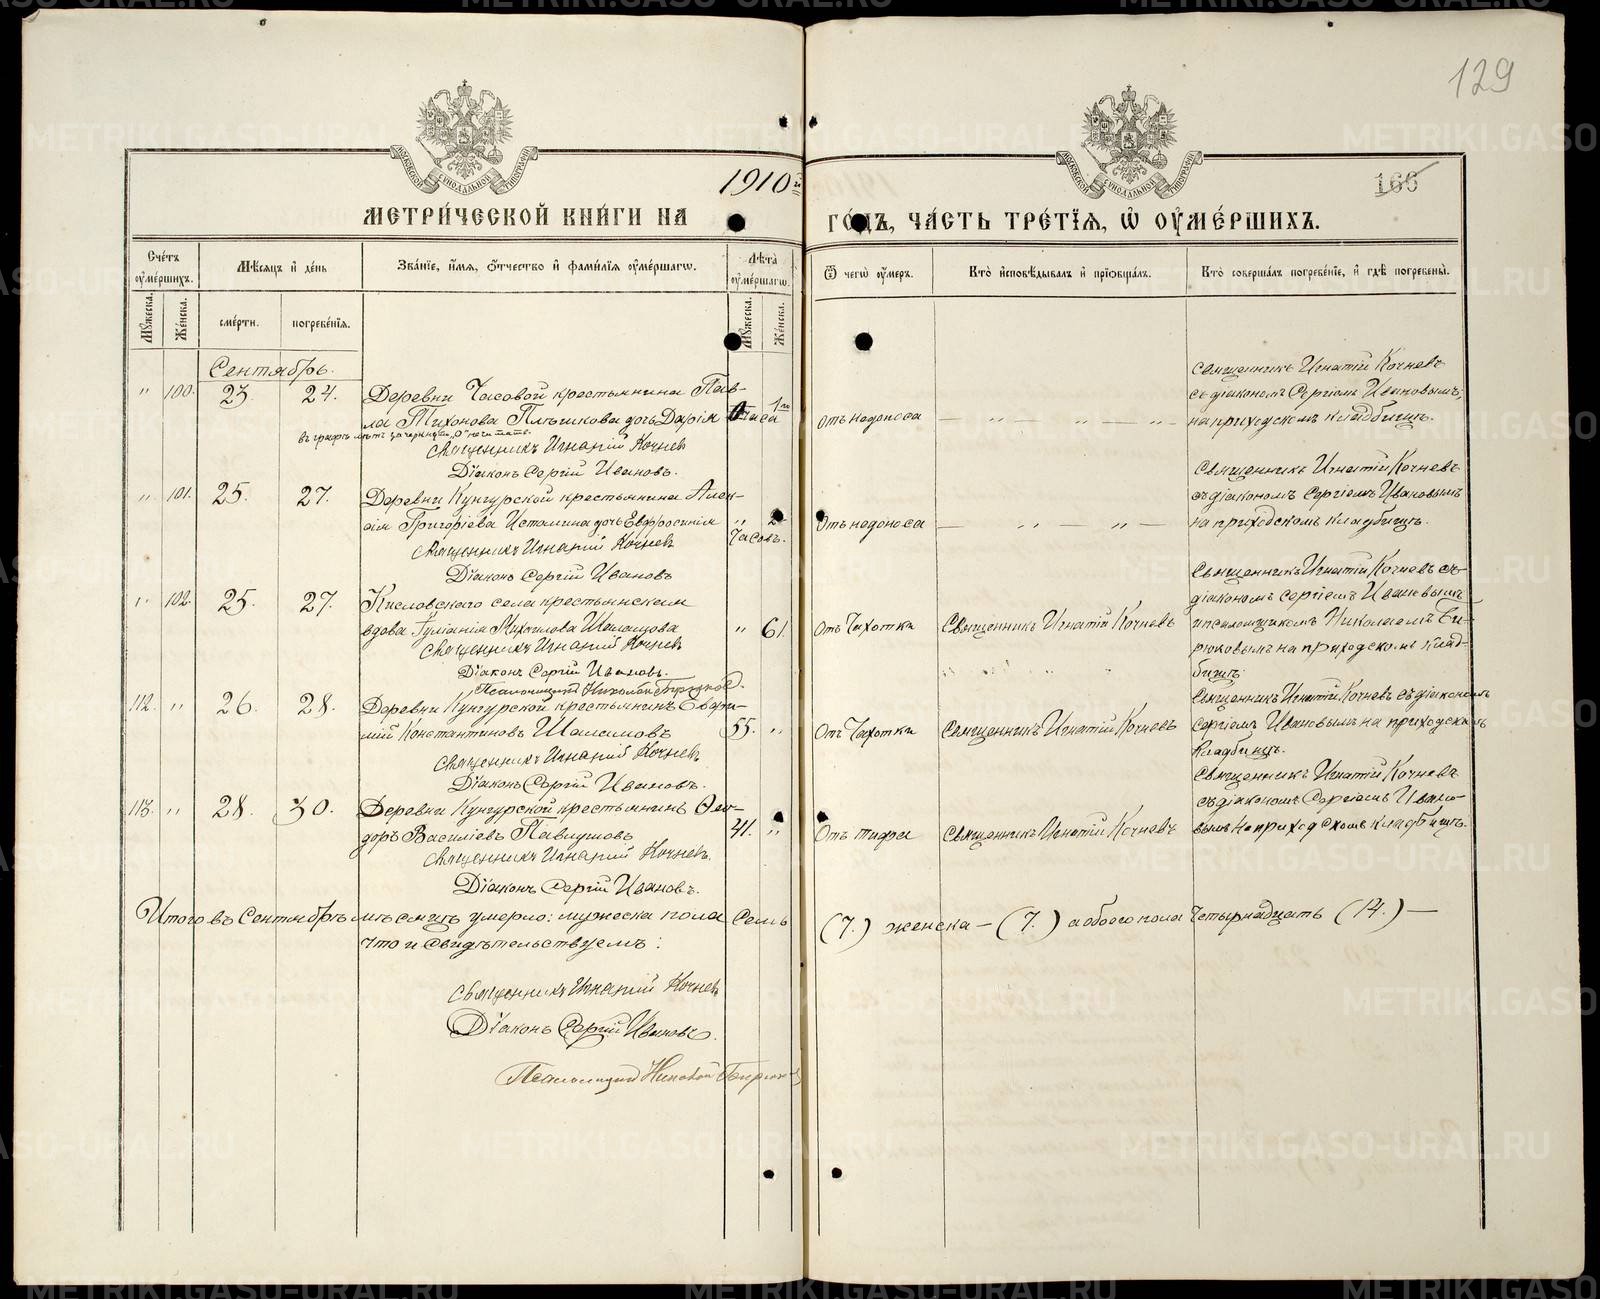 129
МОСКОВСКОЙ СѴНОДАЛЬНОЙ ТИПОГРАФІИ
МОСКОВСКОЙ СѴНОДАЛЬНОЙ ТИПОГРАФІИ
166
1910й
МЕТРИ́ЧЕСКОЙ КНИ́ГИ НА
ГО́ДЪ, ЧА́СТЬ ТРЕ́ТЇѦ, Ѡ ОУ҆МЕ́РШИХЪ.
Сче́тъ оу҆ме́ршихъ.
Мѣ́сяцъ и҆ де́нь
Зва́нїе, и҆́мя, ѻ҆́тчество и҆ фами́лїя оу҆ме́ршагѡ.
Лѣ́та оу҆ме́ршагѡ.
Ѿ чегѡ̀ оу҆́меръ.
Кто̀ и҆сповѣ́дывалъ и҆ прїѡбща́лъ.
Кто̀ соверша́лъ погребе́нїе, и҆ гдѣ̀ погребены̀.
Мꙋ́жеска.
Же́нска.
сме́рти.
погребе́нїя.
Мꙋ́жеска.
Же́нска.
Сентябрь.
" 100. 23. 24. Деревни Часовой крестьянина Пав-
ла Тихонова Плѣшкова дочь Дарія
1го
часа
въ графѣ лѣтъ зачеркнуто „0“ не читать.
Священникъ Игнатій Кочневъ
Діаконъ Сергій Ивановъ.
отъ недоноса — " — " — " —
священникъ Игнатій Кочневъ
съ діакономъ Сергіемъ Ивановымъ,
на приходскомъ кладбищѣ.
" 101. 25. 27. Деревни Кунгурской крестьянина Алек-
сія Григоріева Истомина дочь Евфросинія " 2
часовъ.
Священникъ Игнатій Кочневъ
Діаконъ Сергій Ивановъ
Отъ недоноса — " — " —
Священникъ Игнатій Кочневъ
съ діакономъ Сергіемъ Ивановымъ
на приходскомъ кладбищѣ.
" 102. 25. 27. Кисловскаго села крестьянская
вдова Іуліанія Михайлова " 61.
Священникъ Игнатій Кочневъ
Діаконъ Сергій Ивановъ.
Псаломщикъ Николай Бирюков.
отъ Чахотки
Священникъ Игнатій Кочневъ
Священникъ Игнатій Кочневъ съ
діакономъ Сергіемъ Ивановымъ
и псаломщикомъ Николаемъ Би-
рюковымъ на приходскомъ клад-
бищѣ.
112. " 26. 28. Деревни Кунгурской крестьянинъ Евфи-
мій Константиновъ Шалимовъ 55. "
Священникъ Игнатій Кочневъ
Діаконъ Сергій Ивановъ.
Отъ Чахотки
Священникъ Игнатій Кочневъ
Священникъ Игнатій Кочневъ съ діакономъ
Сергіемъ Ивановымъ на приходскомъ
кладбищѣ.
113. " 28. 30. Деревни Кунгурской крестьянинъ Ѳео-
доръ Василіевъ Павлушовъ 41. "
Священникъ Игнатій Кочневъ.
Діаконъ Сергій Ивановъ.
Отъ тифа
Священникъ Игнатій Кочневъ
Священникъ Игнатій Кочневъ
съ діакономъ Сергіемъ Ивано-
вымъ на приходскомъ кладбищѣ.
Итого въ Сентябрѣ мѣсяцѣ умерло: мужеска пола Семь (7.) женска — (7.) а обоего пола Четырнадцать (14.) —
что и свидѣтельствуемъ:
Священникъ Игнатій Кочневъ
Діаконъ Сергій Ивановъ.
Псаломщикъ Николай Бирюков
METRIKI.GASO-URAL.RU